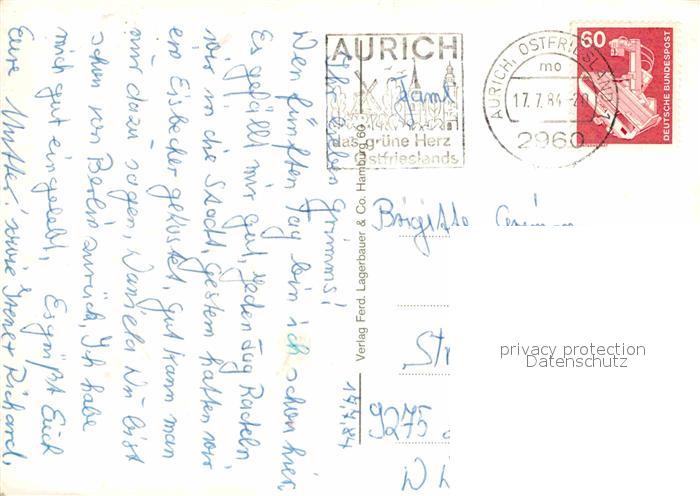 AURICH
das grüne Herz
Ostfrieslands
AURICH, OSTFRIESLAND 1
mo
17.7.84-20
2960
60
DEUTSCHE BUNDESPOST
Ihr lieben Grimms!
Den fünften Tag bin ich schon hier.
Es gefällt mir gut, jeden Tag Radeln
wir in die Stadt, gestern hatten wir
ein Eisbecher gekostet, gut kann man
nur dazu sagen, Daniela Du bist
schon von Berlin zurück, Ich habe
mich gut eingelebt, Es grüßt Euch
Eure Mutter, sowie Richard,
17.7.84
Verlag Ferd. Lagerbauer & Co. Hamburg 60
Famt
Brigitte
Str
9275
privacy protection
Datenschutz